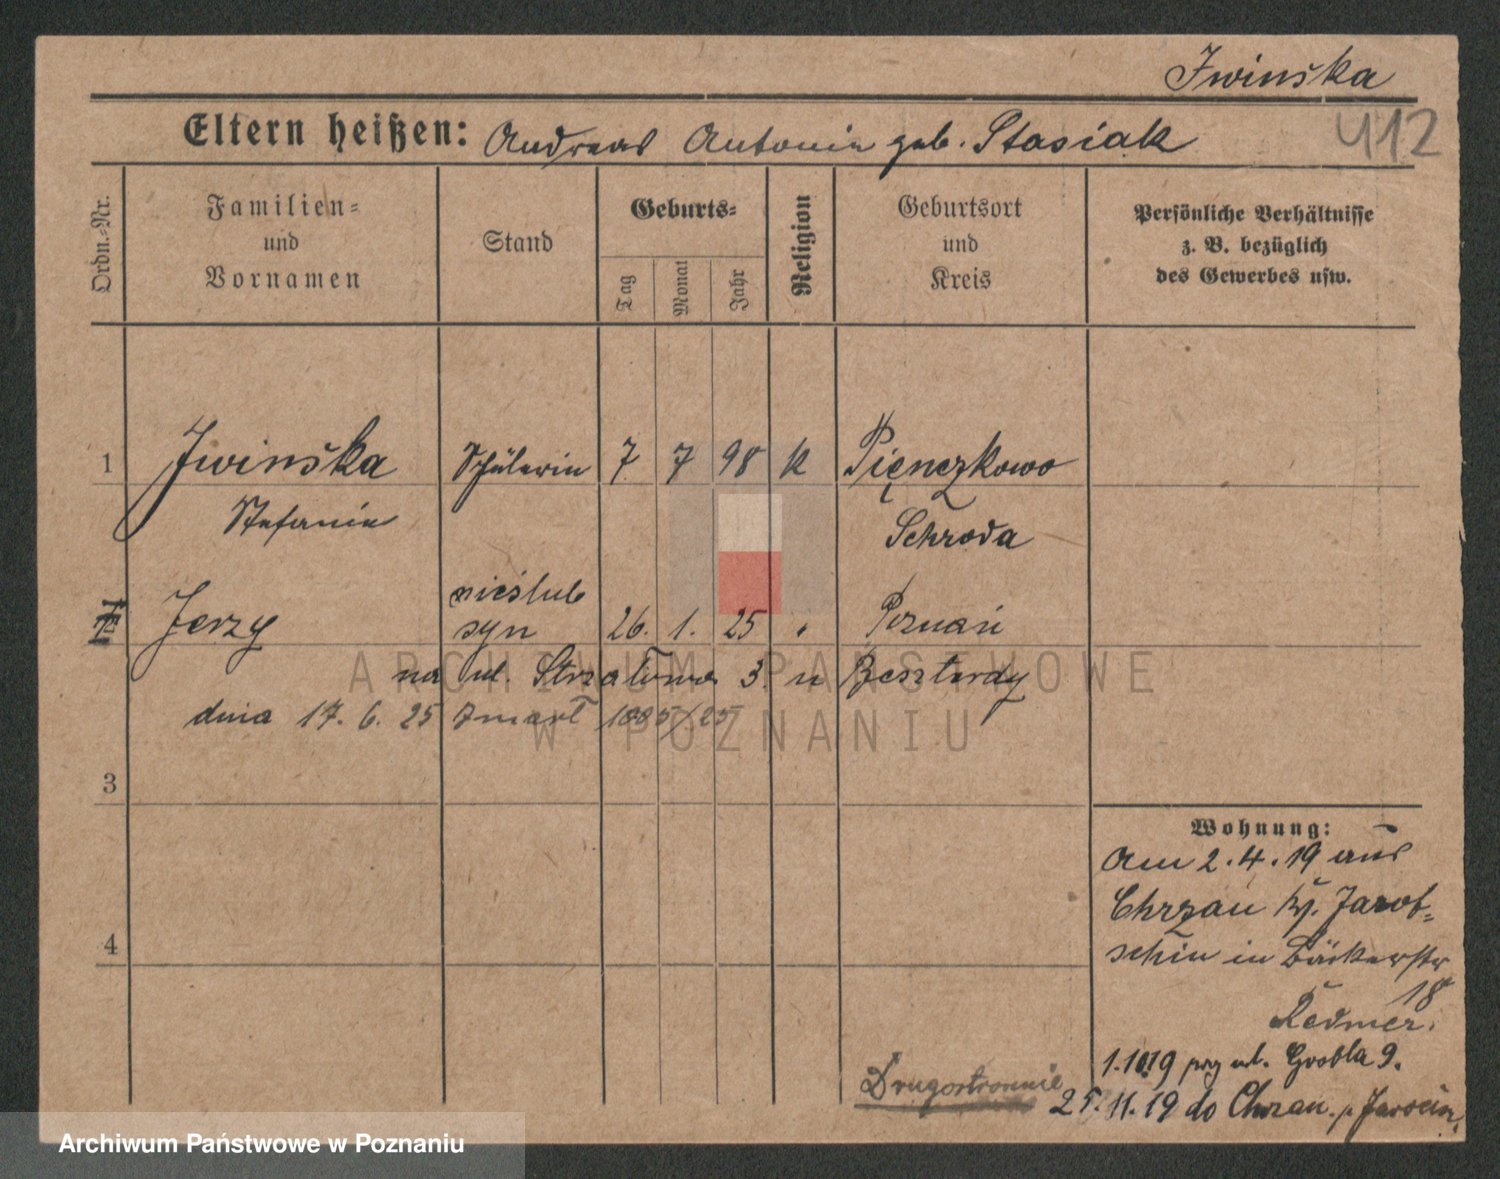 Iwinška
Eltern heißen: Andreas Antonie geb. Stasiak
412
Ordn.-Nr.
Familien-
und
Vornamen
Stand
Geburts-
Tag
Monat
Jahr
Religion
Geburtsort
und
Kreis
Persönliche Verhältnisse
z. B. bezüglich
des Gewerbes usw.
1 Iwinška Schülerin 7 7 98 K Pięnczkowo
Stefanie Schroda
Jerzy nieślub
syn 26. 1. 25 Poznań
na ul. Strzałowa 3. u Beszterdy
dnia 17. 6. 25 zmarł 1885/25
3
4
Wohnung:
Am 2.4.19 aus
Chrzan Kr. Jarot-
schin in Bäckerstr
18
Redmer.
1.10.19 przy ul. Grobla 9.
Drugostronnie
25.11.19 do Chrzan. p. Jarocin.
ARCHIWUM PAŃSTWOWE
W POZNANIU
Archiwum Państwowe w Poznaniu